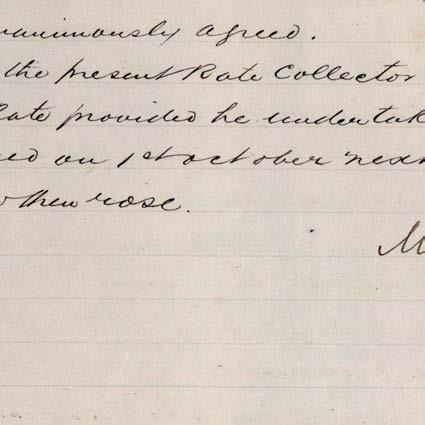 unanimously agreed.
the present Rate Collector
Rate provided he undertak
ed on 1st october next
then rose.
M